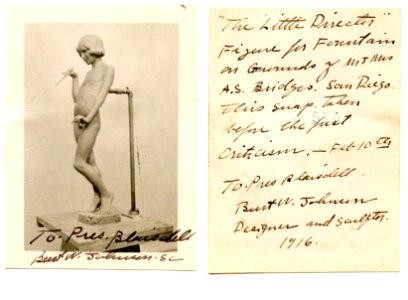 To. Pres. Blaisdell
Burt W. Johnson. Sc
"The Little Director"
Figure for Fountain
on Grounds of Mr & Mrs
A.S. Bridges. San Diego.
This snap. taken
before the first
Criticism. — Feb. 10th
To. Pres Blaisdell.
Burt W. Johnson
Designer and Sculptor.
1916.